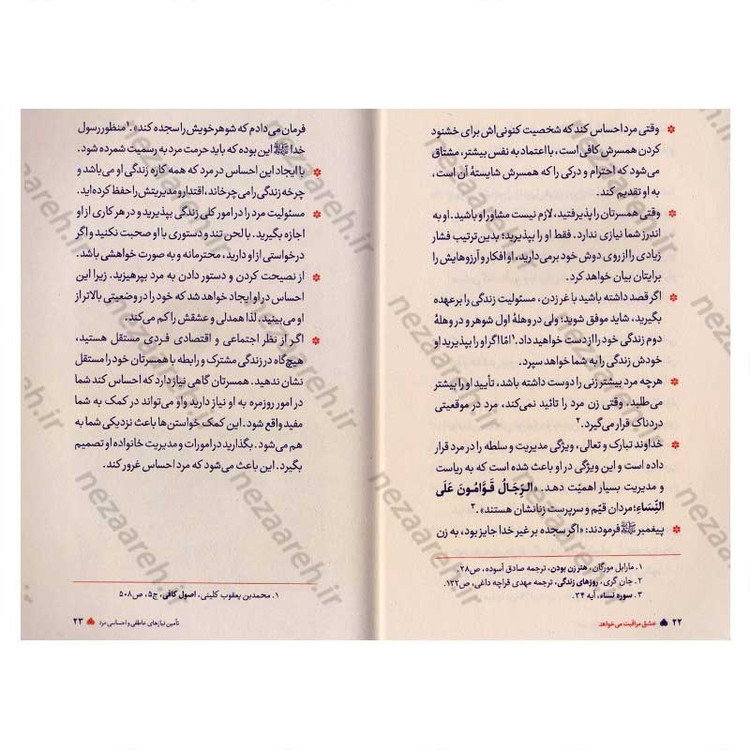 وقتی مرد احساس کند که شخصیت کنونی‌اش برای خشنود
کردن همسرش کافی است، با اعتماد به نفس بیشتر، مشتاق
می‌شود که احترام و درکی را که همسرش شایستهٔ آن است،
به او تقدیم کند.
وقتی همسرتان را پذیرفتید، لازم نیست مشاور او باشید. او به
اندرز شما نیازی ندارد. فقط او را بپذیرید؛ بدین‌ترتیب فشار
زیادی را از روی دوش خود برمی‌دارید، او افکار و آرزوهایش را
برایتان بیان خواهد کرد.
اگر قصد داشته باشید با غر زدن، مسئولیت زندگی را برعهده
بگیرید، شاید موفق شوید؛ ولی در وهلهٔ اول شوهر و در وهلهٔ
دوم زندگی خود را از دست خواهید داد.۱ امّا اگر او را بپذیرید او
خودش زندگی را به شما خواهد سپرد.
هرچه مرد بیشتر زنی را دوست داشته باشد، تأیید او را بیشتر
می‌طلبد. وقتی زن مرد را تائید نمی‌کند، مرد در موقعیتی
دردناک قرار می‌گیرد.۲
خداوند تبارک و تعالی، ویژگی مدیریت و سلطه را در مرد قرار
داده است و این ویژگی در او باعث شده است که به ریاست
و مدیریت بسیار اهمیّت دهد. «الرِّجَالُ قَوَّامُونَ عَلَى
النِّسَاءِ؛ مردان قیّم و سرپرست زنانشان هستند».۳
پیغمبر ﷺ فرمودند: «اگر سجده بر غیر خدا جایز بود، به زن
۱. مارابل مورگان، هنر زن بودن، ترجمه صادق آسوده، ص۲۸.
۲. جان گری، روزهای زندگی، ترجمه مهدی قراچه داغی، ص۱۳۲.
۳. سوره نساء، آیه ۳۴.
۲۲ عشق مراقبت می‌خواهد
فرمان می‌دادم که شوهر خویش را سجده کند».۱ منظور رسول
خدا ﷺ این بوده که باید حرمت مرد به رسمیت شمرده شود.
با ایجاد این احساس در مرد که همه کاره زندگی او می‌باشد و
چرخه زندگی را می‌چرخاند، اقتدار و مدیریتش را حفظ کرده‌اید.
مسئولیت مرد را در امور کلی زندگی بپذیرید و در هر کاری از او
اجازه بگیرید. با لحن تند و دستوری با او صحبت نکنید و اگر
درخواستی از او دارید، محترمانه و به صورت خواهشی باشد.
از نصیحت کردن و دستور دادن به مرد بپرهیزید. زیرا این
احساس در او ایجاد خواهد شد که خود را در وضعیتی بالاتر از
او می‌بینید. لذا همدلی و عشقش را کم می‌کند.
اگر از نظر اجتماعی و اقتصادی فردی مستقل هستید،
هیچ‌گاه در زندگی مشترک و رابطه با همسرتان خود را مستقل
نشان ندهید. همسرتان گاهی نیاز دارد که احساس کند شما
در امور روزمره به او نیاز دارید و او می‌تواند در کمک به شما
مفید واقع شود. این کمک خواستن‌ها باعث نزدیکی شما به
هم می‌شود. بگذارید در امورات و مدیریت خانواده او تصمیم
بگیرد. این باعث می‌شود که مرد احساس غرور کند.
۱. محمدبن یعقوب کلینی، اصول کافی، ج۵، ص۵۰۸
تأمین نیازهای عاطفی و احساسی مرد ۲۳
nezaareh.ir
nezaareh.ir
nezaareh.ir
nezaareh.ir
nezaareh.ir
nezaareh.ir